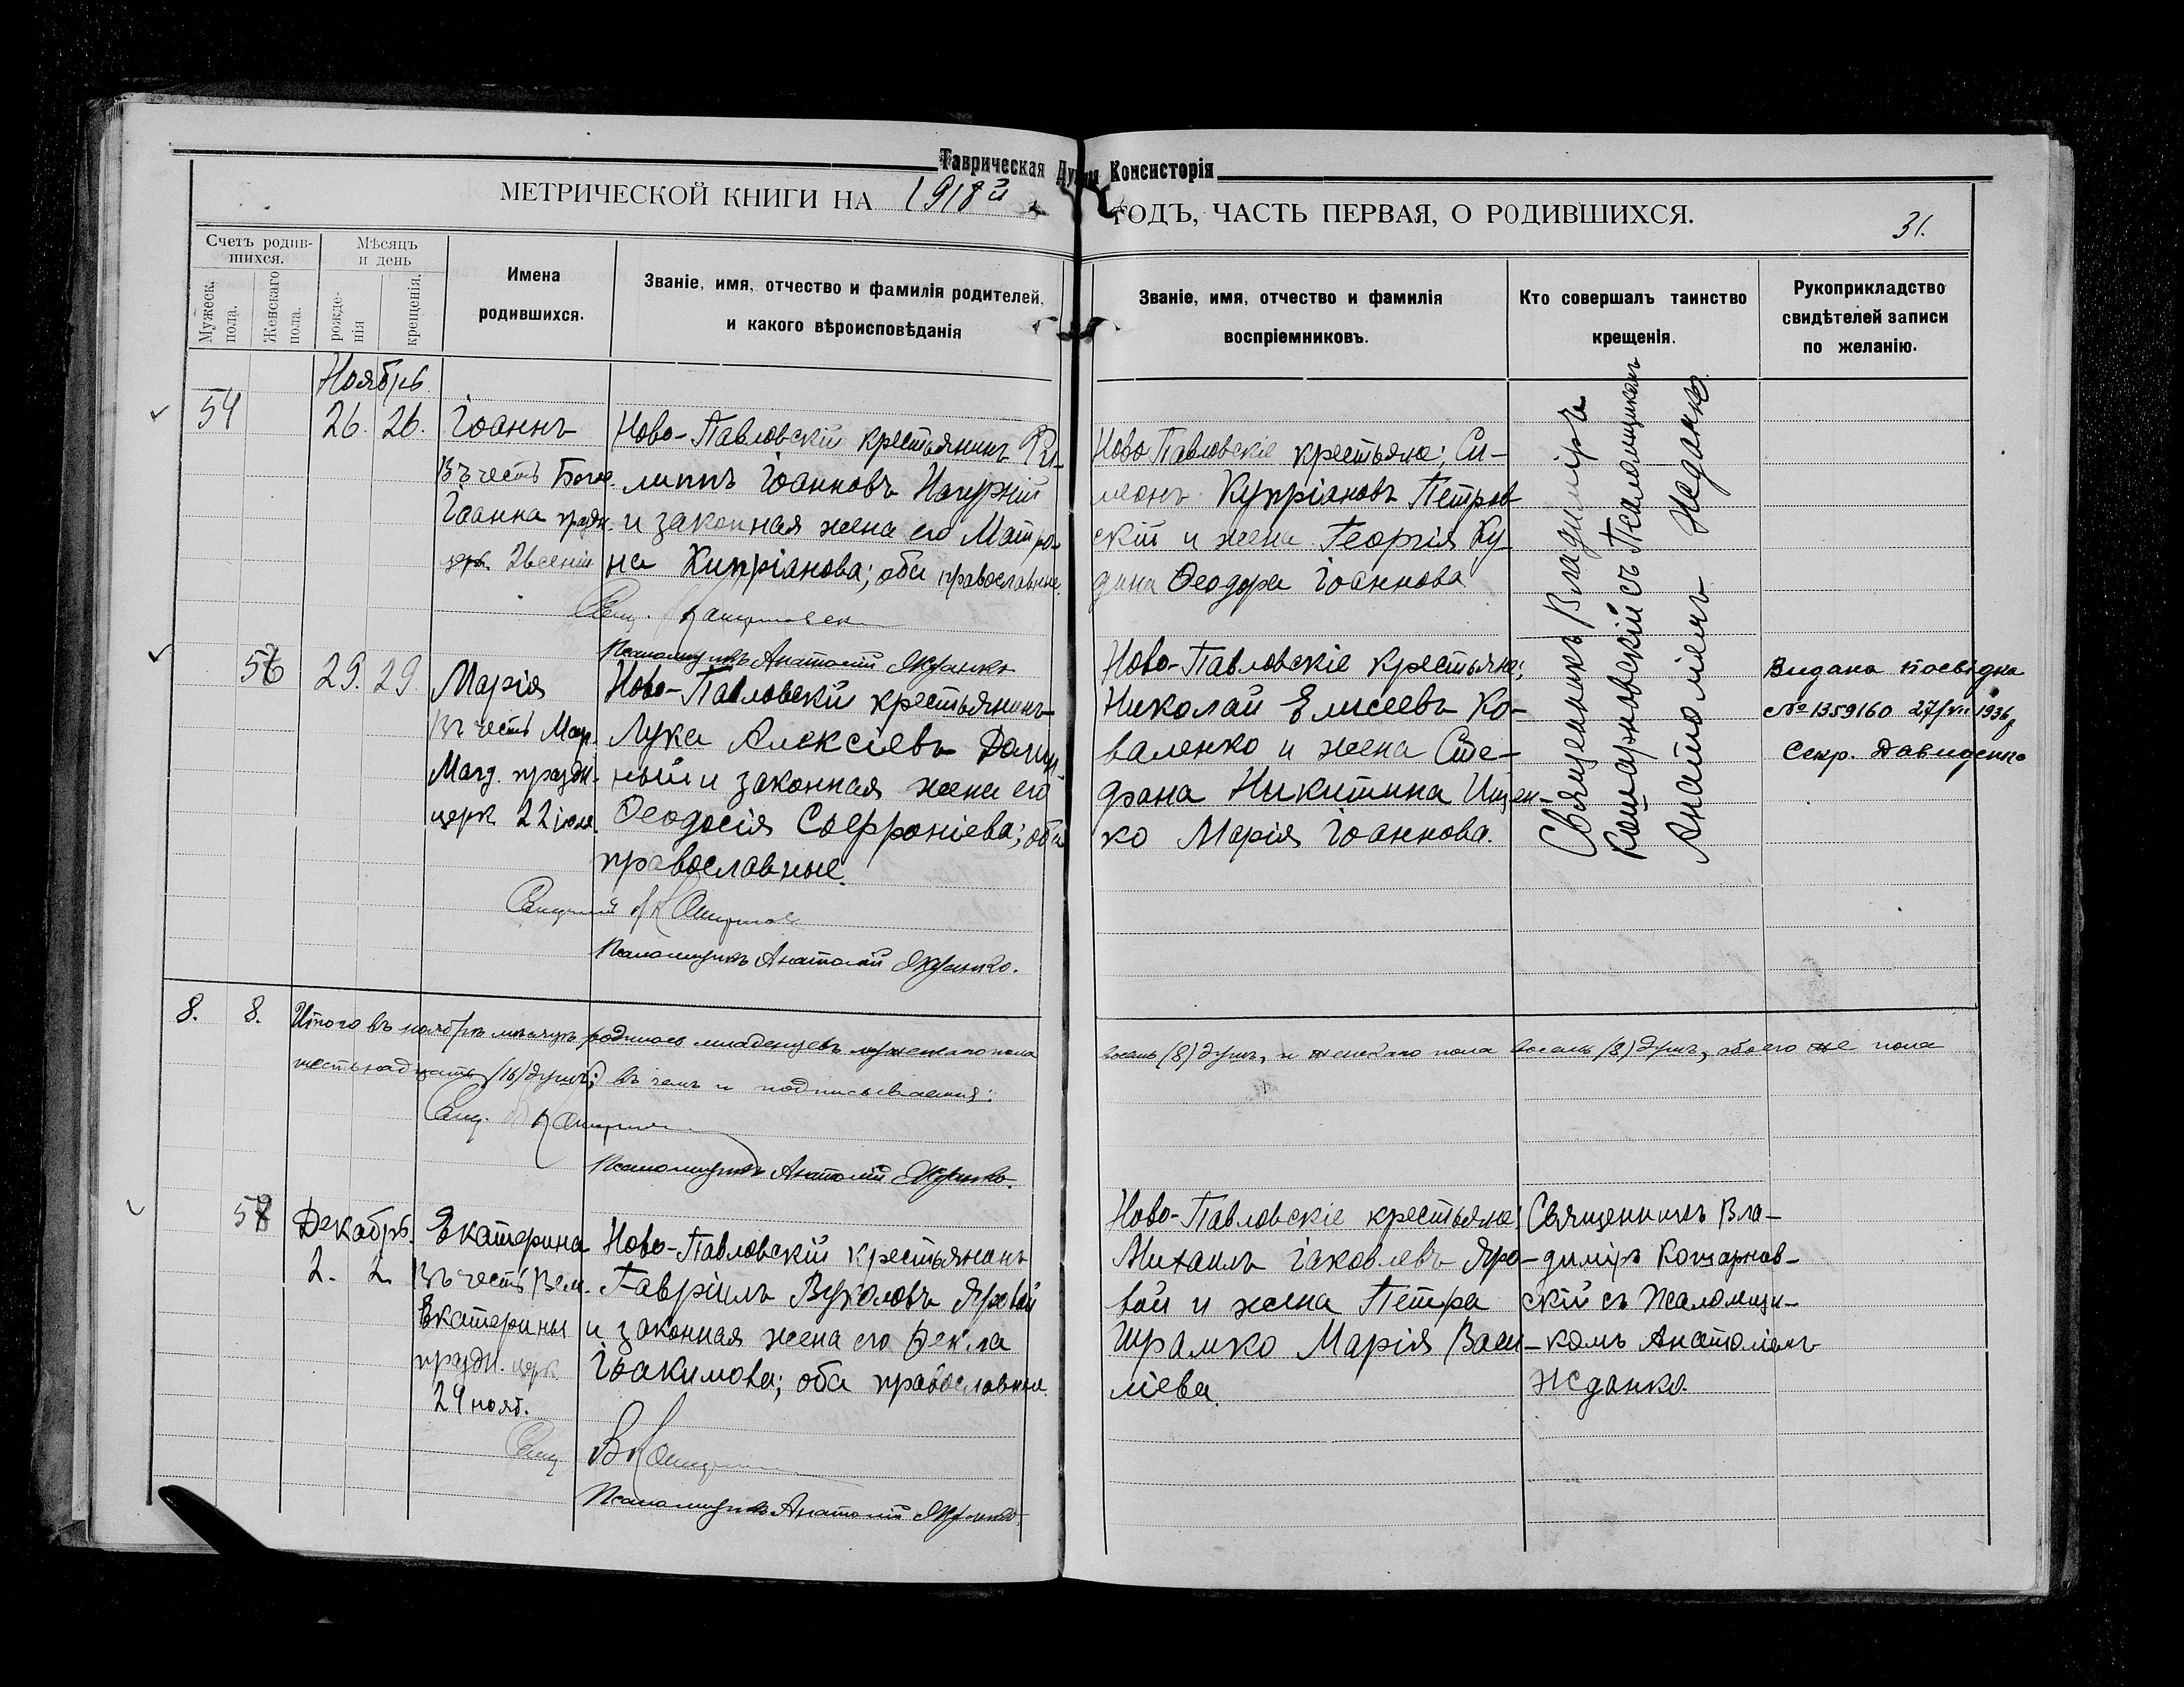 Таврическая Духвн Консисторія
МЕТРИЧЕСКОЙ КНИГИ НА 1918й ГОДЪ, ЧАСТЬ ПЕРВАЯ, О РОДИВШИХСЯ.
31.
Счетъ родив-
шихся.
Мужеск.
пола.
Женскаго
пола.
Мѣсяцъ
и день
рожде-
нія
крещенія.
Имена
родившихся.
Званіе, имя, отчество и фамилія родителей,
и какого вѣроисповѣданія
Званіе, имя, отчество и фамилія
воспріемниковъ.
Кто совершалъ таинство
крещенія.
Рукоприкладство
свидѣтелей записи
по желанію.
Ноябрь
54
26. 26.
Іоаннъ
Въ честь
Іоанна праздн.
церк.
Ново-Павловскій крестьянинъ Фи-
липпъ Іоанновъ Нагурній
и законная жена его Матро-
на Кипріанова; оба православные.
Свящ.
Псаломщикъ Анатолій Жданко
Ново-Павловскіе крестьяне: Си-
меонъ Купріановъ Петров-
скій и жена Георгія Ку-
дина Ѳеодора Іоаннова
Священникъ Владиміръ
Кошарновскій съ Псаломщикомъ
Анатоліемъ Жданко
56
29. 29
Марія
Въ честь Мар.
Магд. праздн.
церк 22 іюля.
Ново-Павловскій крестьянинъ
Лука Алексіевъ
и законная жена его
Ѳеодосія Софроніева; оба
православные.
Псаломщикъ Анатолій Жданко.
Ново-Павловскіе крестьяне:
Николай Елисеевъ Ко-
валенко и жена Сте-
фана Никитина Ищен-
ко Марія Іоаннова.
Видана посвідка
№ 1359160 27/VII 1936 р
Секр. Давиденко
8. 8. Итого въ ноябрѣ мѣсяцѣ родилось младенцевъ мужескаго пола
восемь (8) душъ, и женскаго пола восемь (8) душъ, обоего же пола
шестьнадцать (16) душъ; въ чемъ и подписываемся:
Свящ.
Псаломщикъ Анатолій Жданко.
Декабрь.
2. 2.
Екатерина
Въ честь Вели.
Екатерины
праздн. церк
24 нояб.
Ново-Павловскій крестьянинъ
Гавріилъ Вуколовъ Яровой
и законная жена его Ѳекла
Іоакимова; оба православные.
Свящ
Псаломщикъ Анатолій Жданко.
Ново-Павловскіе крестьяне:
Михаилъ Іаковлевъ Яро-
вой и жена Петра
Шрамко Марія Васи-
ліева.
Священникъ Вла-
диміръ Кошарнов-
скій съ Псаломщи-
комъ Анатоліемъ
Жданко.